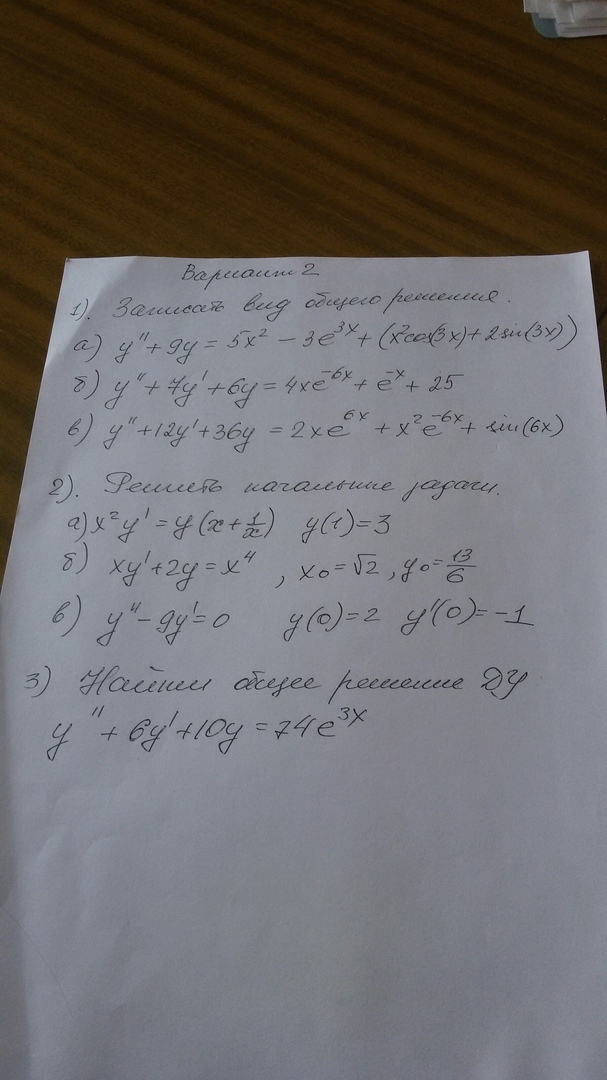 Вариант 2
1). Записать вид общего решения.
а) y'' + 9y = 5x² - 3e^{3x} + (x²cos(3x) + 2sin(3x))
б) y'' + 7y' + 6y = 4xe^{-6x} + e^{-x} + 25
в) y'' + 12y' + 36y = 2xe^{6x} + x²e^{-6x} + sin(6x)
2). Решить начальные задачи.
а) x²y' = y(x + 1/x) y(1) = 3
б) xy' + 2y = x⁴, x₀ = √2, y₀ = 13/6
в) y'' - 9y' = 0 y(0) = 2 y'(0) = -1
3) Найти общее решение ДУ
y'' + 6y' + 10y = 74e^{3x}